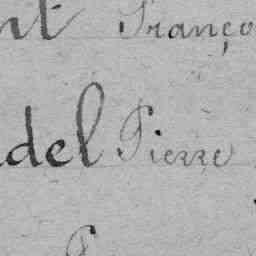 nt Franço
del Pierre